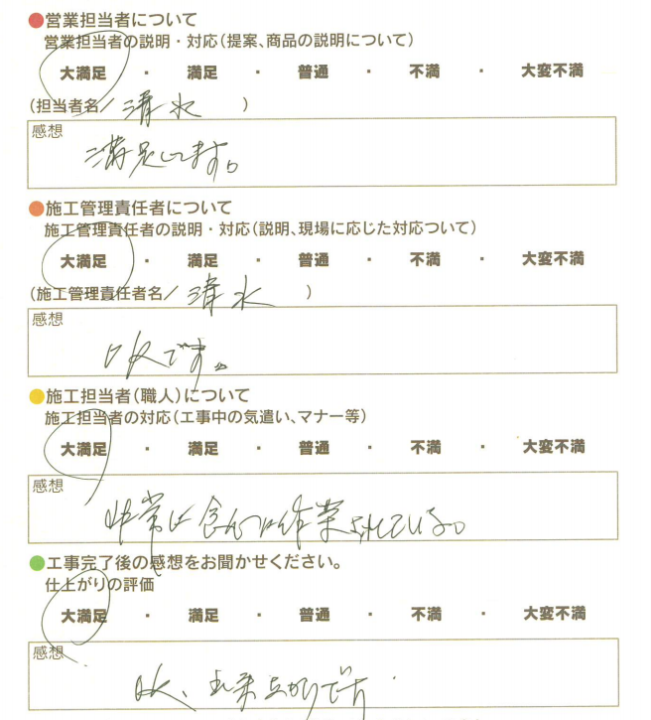 ●営業担当者について
営業担当者の説明・対応(提案、商品の説明について)
大満足 ・ 満足 ・ 普通 ・ 不満 ・ 大変不満
(担当者名/ 清水 )
感想
満足してます。
●施工管理責任者について
施工管理責任者の説明・対応(説明、現場に応じた対応ついて)
大満足 ・ 満足 ・ 普通 ・ 不満 ・ 大変不満
(施工管理責任者名/ 清水 )
感想
OKです。
●施工担当者(職人)について
施工担当者の対応(工事中の気遣い、マナー等)
大満足 ・ 満足 ・ 普通 ・ 不満 ・ 大変不満
感想
非常に 作業されている。
●工事完了後の感想をお聞かせください。
仕上がりの評価
大満足 ・ 満足 ・ 普通 ・ 不満 ・ 大変不満
感想
OK、出来上がりです